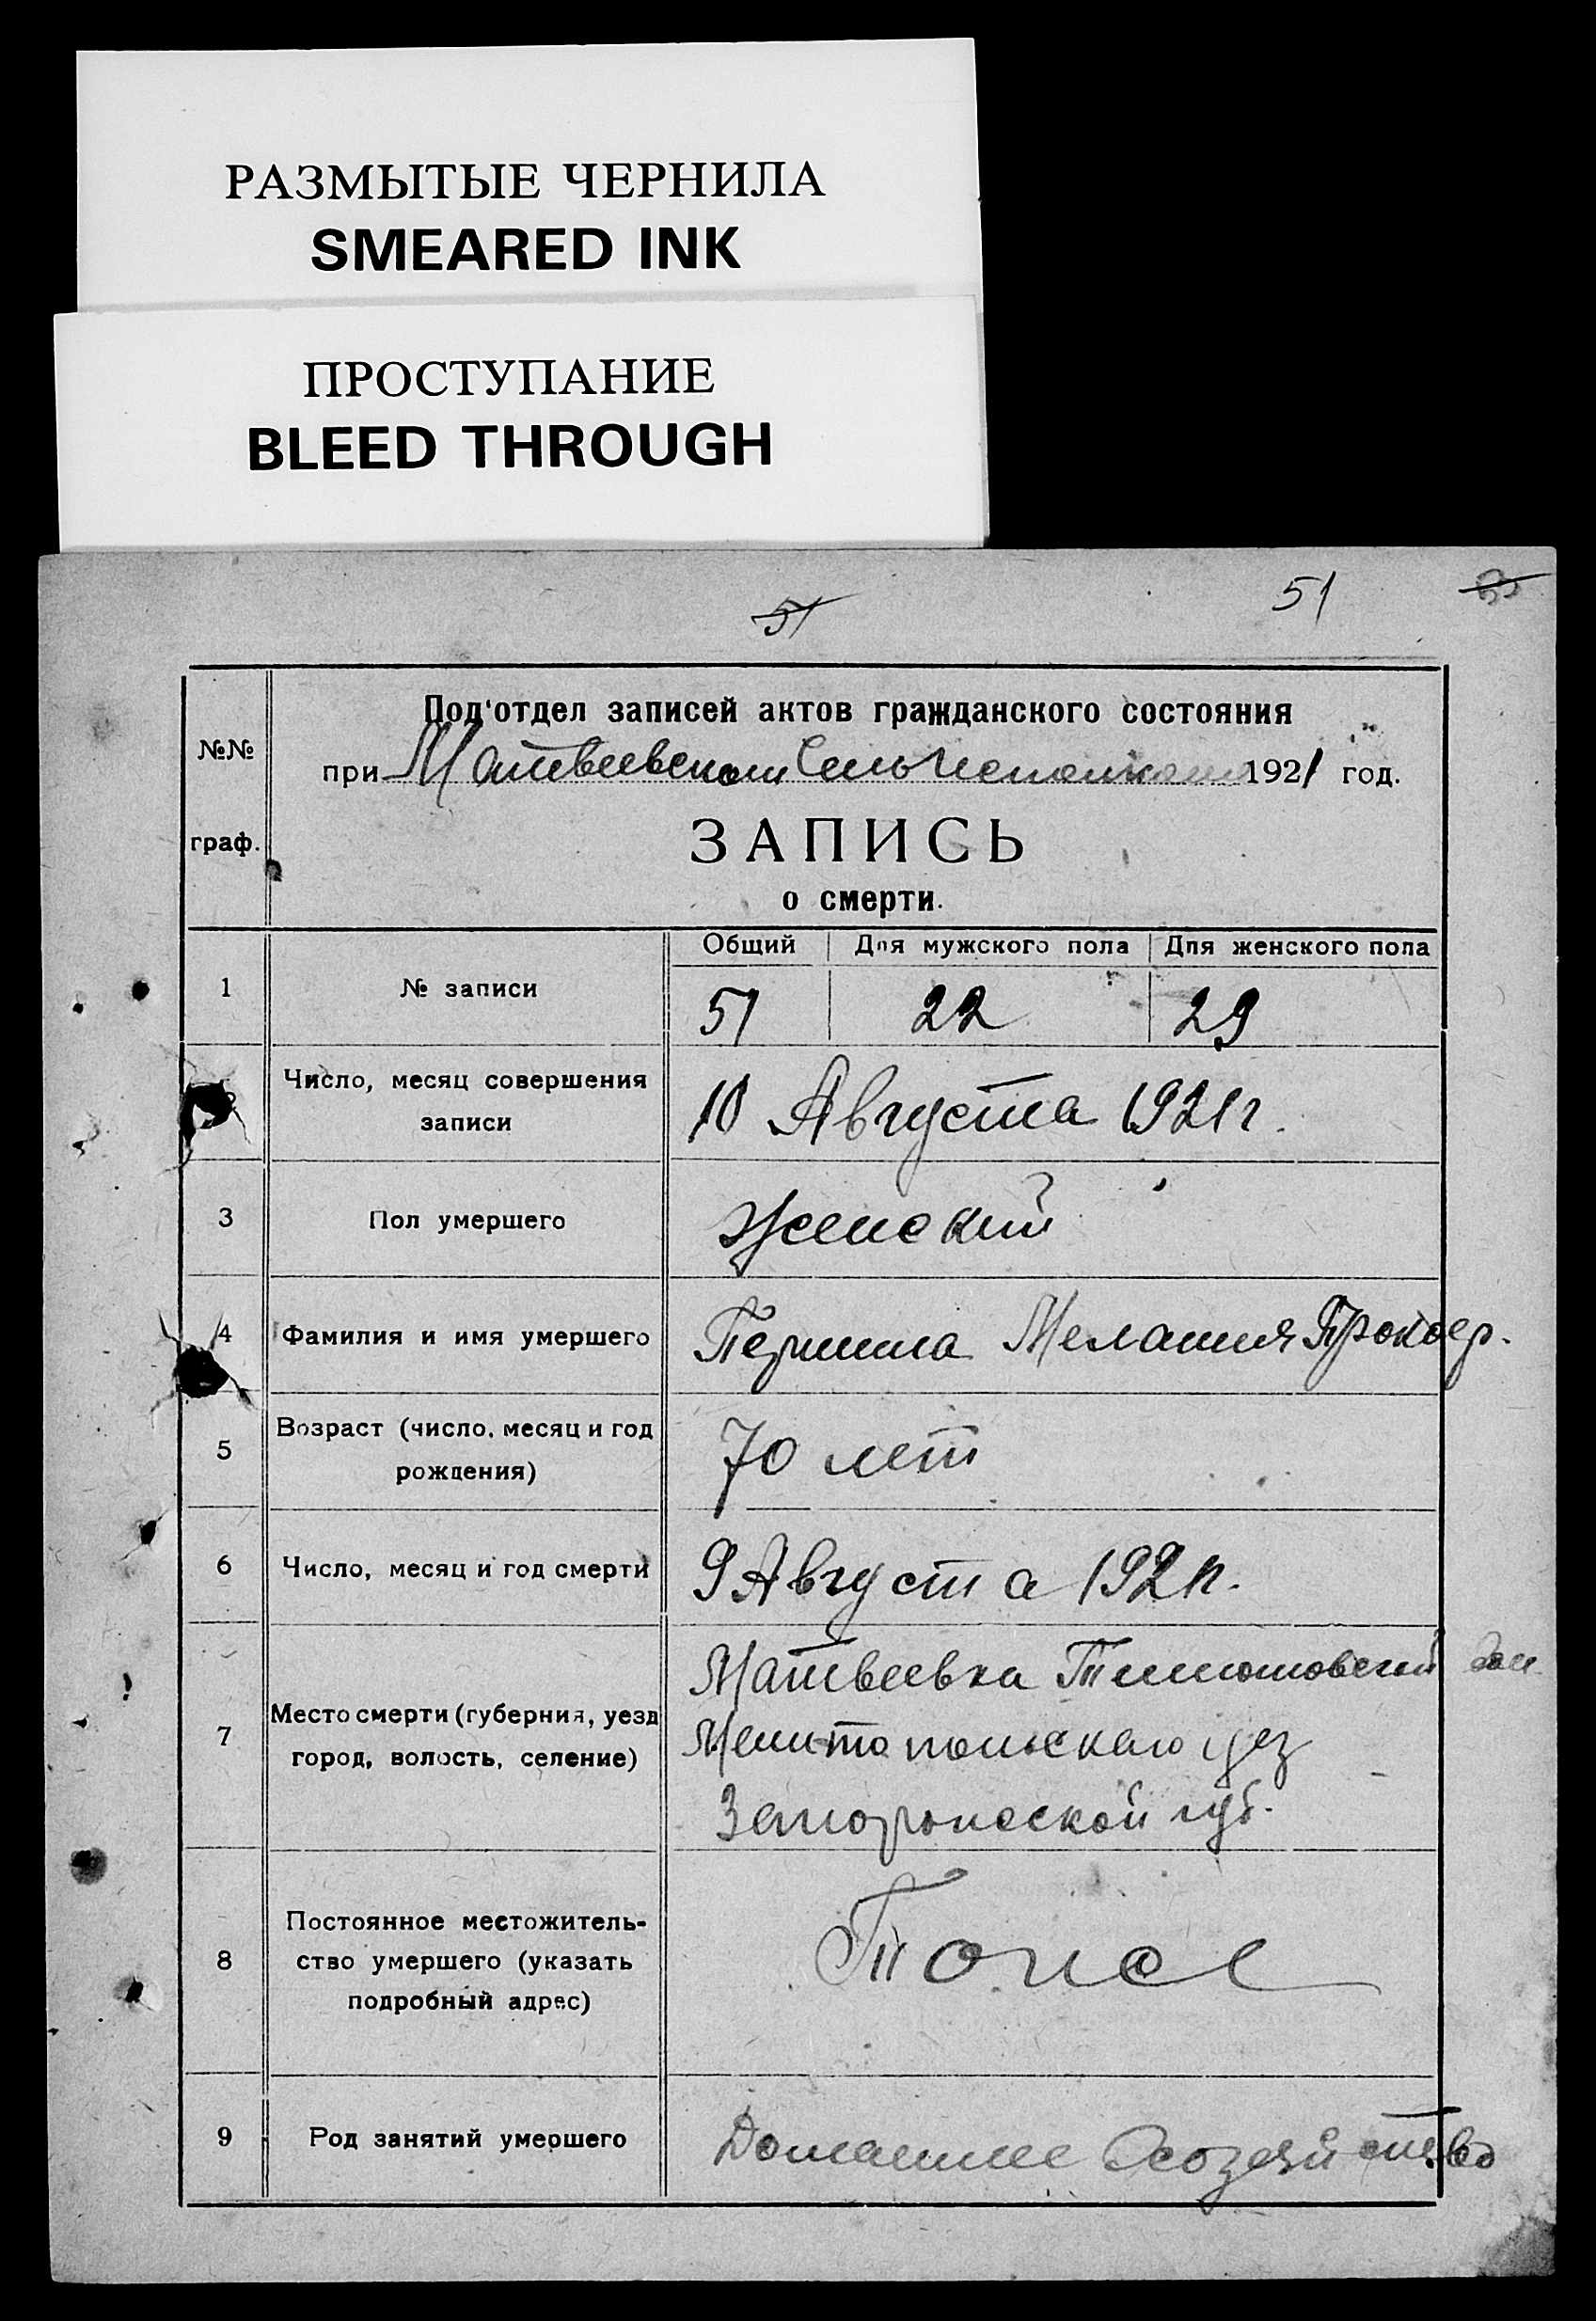 РАЗМЫТЫЕ ЧЕРНИЛА
SMEARED INK
ПРОСТУПАНИЕ
BLEED THROUGH
51
51
Под'отдел записей актов гражданского состояния
№№
при Матвеевском Сельисполкоме 1921 год.
граф.
ЗАПИСЬ
о смерти.
Общий Для мужского пола Для женского пола
1 № записи 51 22 29
Число, месяц совершения
записи
10 Августа 1921 г.
3 Пол умершего Женский
4 Фамилия и имя умершего Мелания Прокоф.
5 Возраст (число, месяц и год
рождения)
70 лет
6 Число, месяц и год смерти 9 Августа 1921 г.
7 Место смерти (губерния, уезд
город, волость, селение)
Матвеевка
Мелитопольскаго уез
Запорожской губ.
8 Постоянное местожитель-
ство умершего (указать
подробный адрес)
Тоже
9 Род занятий умершего Домашнее Хозяйство